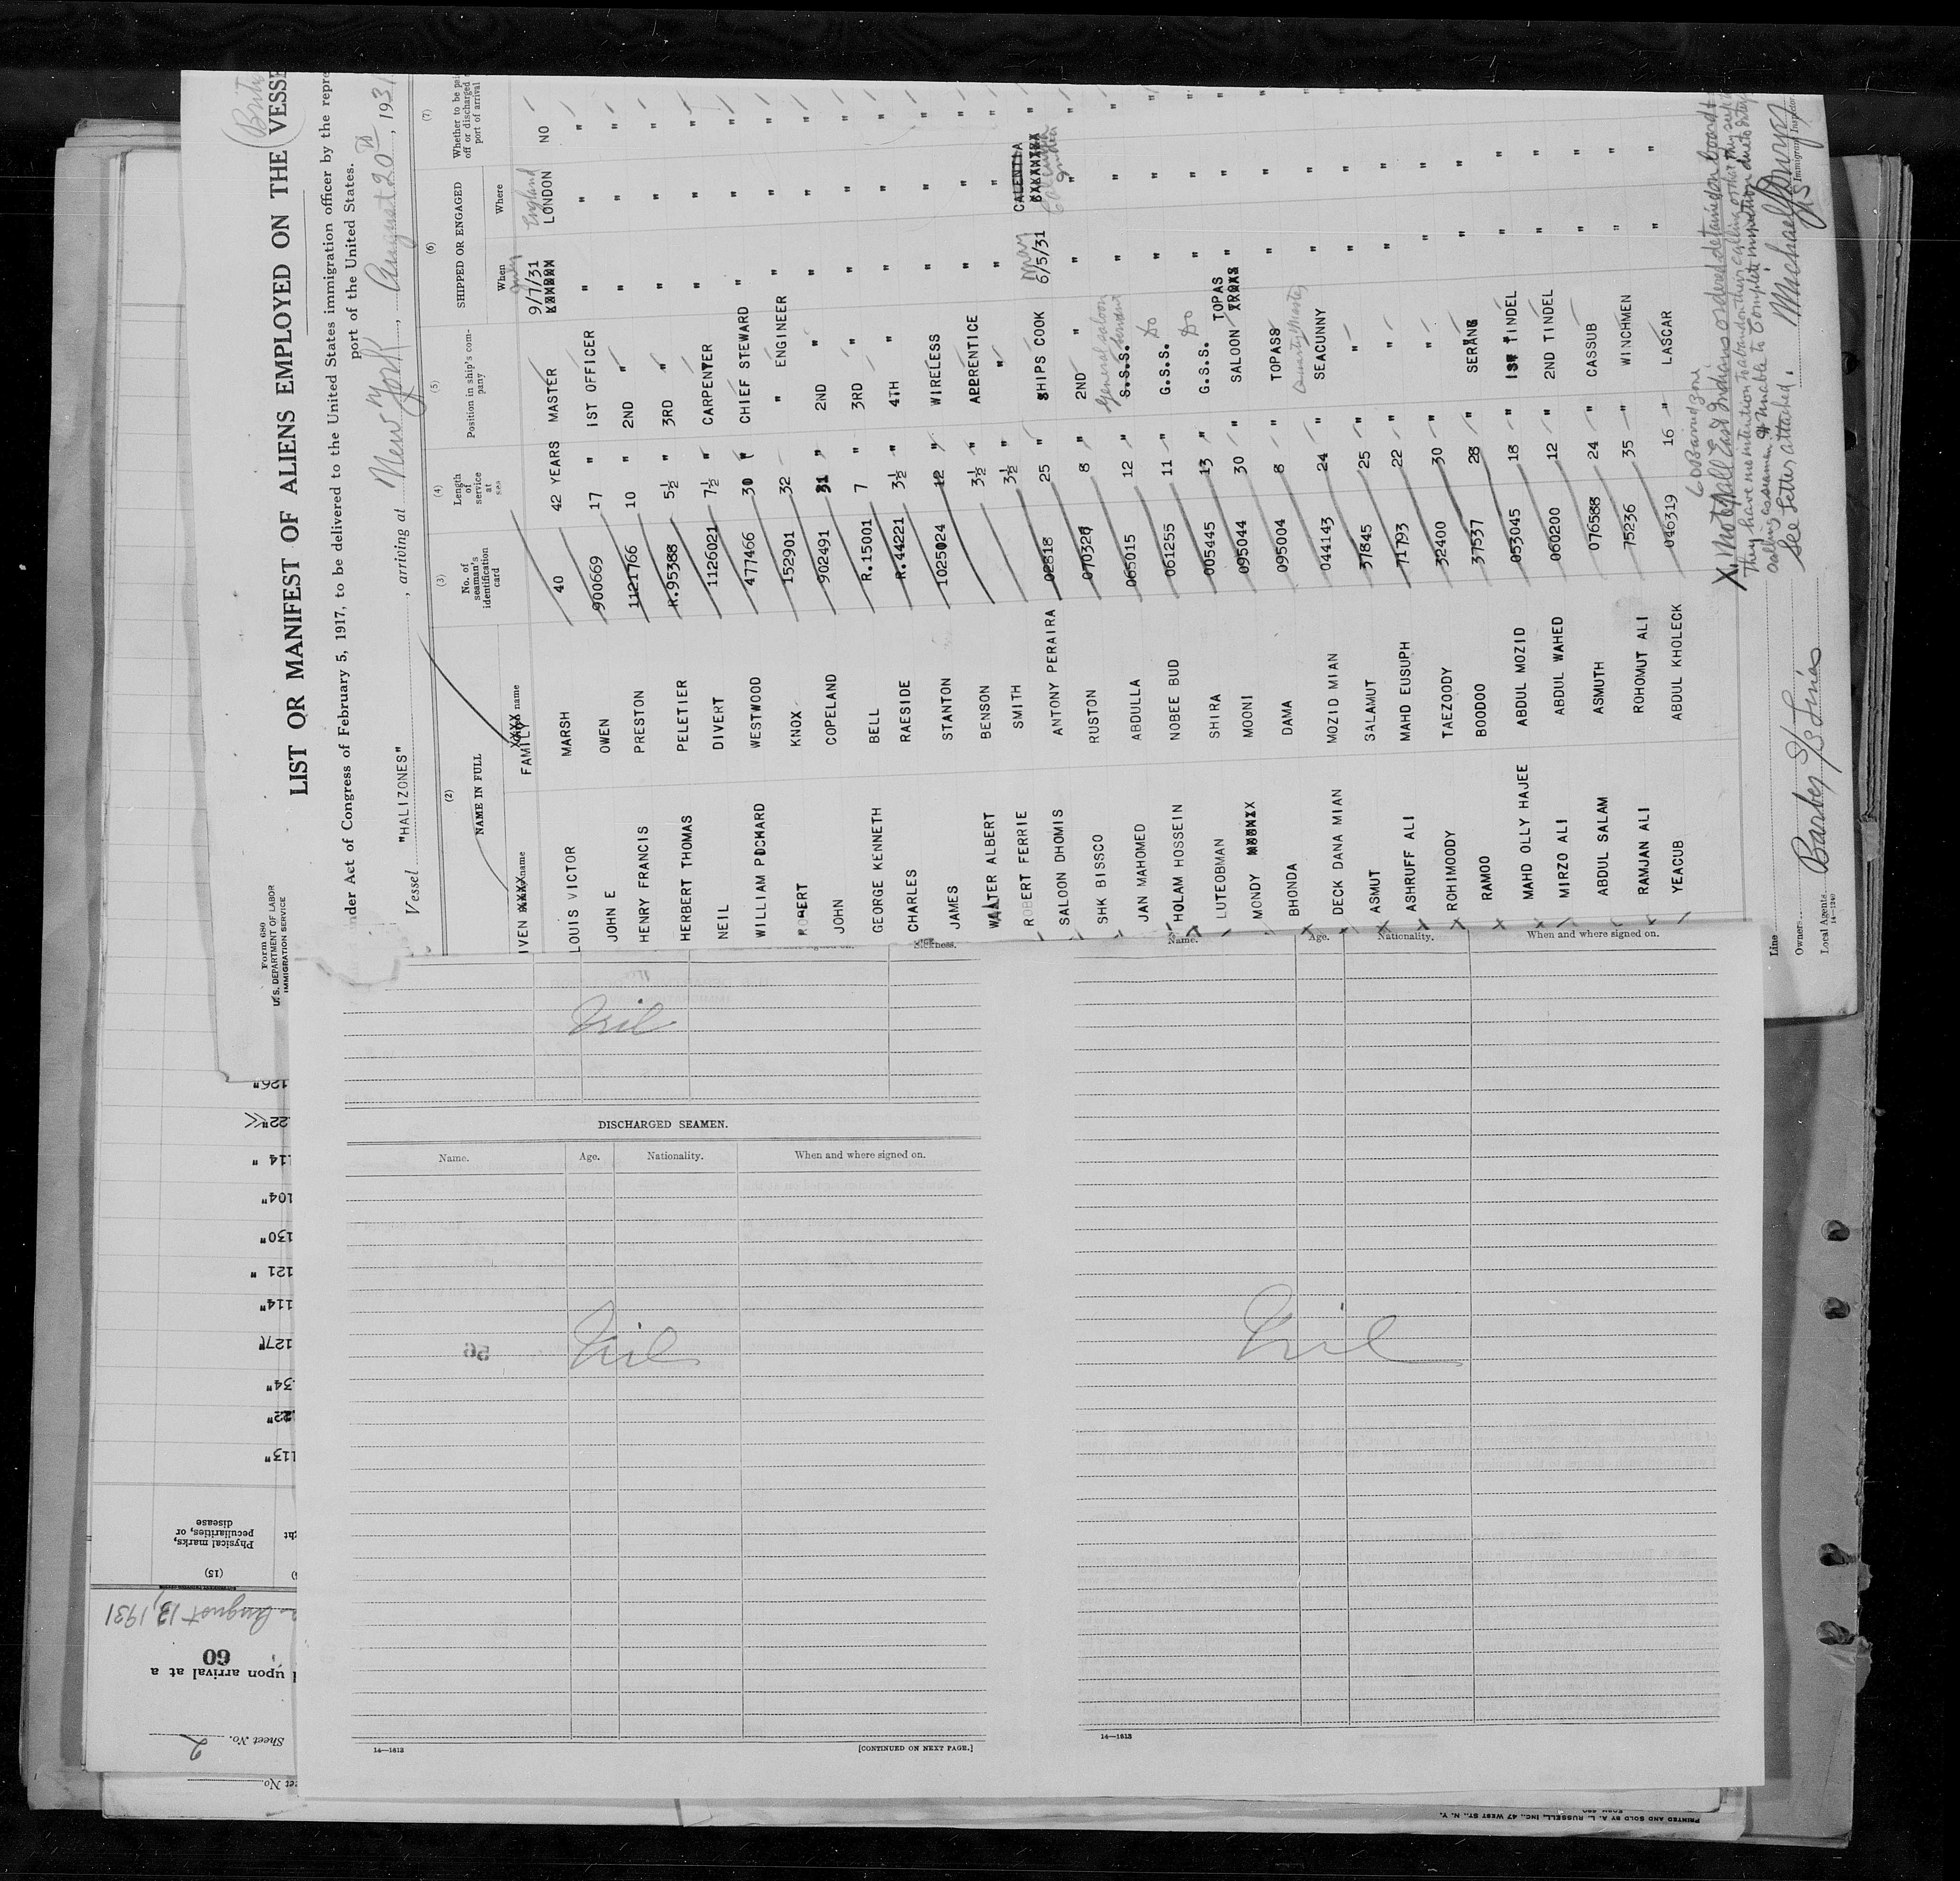 Form 680
U. S. DEPARTMENT OF LABOR
IMMIGRATION SERVICE
LIST OR MANIFEST OF ALIENS EMPLOYED ON THE VESSE
nder Act of Congress of February 5, 1917, to be delivered to the United States immigration officer by the repre
port of the United States.
Vessel "HALIZONES" , arriving at New York , August 20th , 1931
(2) (3) (4) (5) (6) (7)
NAME IN FULL
No. of seaman's identification card
Length of service at sea
Position in ship's company
SHIPPED OR ENGAGED
When Where
Whether to be pai
off or discharged
port of arrival
IVEN XXXX name FAMILY XXXX name
LOUIS VICTOR MARSH 40 42 YEARS MASTER 9/7/31 July London England NO
JOHN E OWEN 900669 17 " 1ST OFFICER " " "
HENRY FRANCIS PRESTON 1121766 10 " 2ND " " " "
HERBERT THOMAS PELETIER R.95388 5½ " 3RD " " " "
NEIL DIVERT 1126021 7½ " CARPENTER " " "
WILLIAM PICKARD WESTWOOD 477466 30 " CHIEF STEWARD " " "
ROBERT KNOX 152901 32 " ENGINEER " " "
JOHN COPELAND 902491 31 " 2ND " " " "
GEORGE KENNETH BELL R.15001 7 " 3RD " " " "
CHARLES RAESIDE R.44221 3½ " 4TH " " " "
JAMES STANTON 1025024 12 " WIRELESS " " "
WALTER ALBERT BENSON 3½ " APPRENTICE " " "
ROBERT FERRIE SMITH 3½ " " " " "
SALOON DHOMIS ANTONY PERAIRA 02818 25 " SHIPS COOK 6/5/31 May Calcutta India "
SHK BISSCO RUSTON 070320 8 " 2ND " " " "
JAN MAHOMED ABDULLA 065015 12 " S.S.S. General Saloon Servant " " "
HOLAM HOSSEIN NOBEE BUD 061255 11 " G.S.S. Do " " "
LUTEOBMAN SHIRA 005445 13 " G.S.S. Do " " "
MONDY MOONI 095044 30 " SALOON TOPAS " " "
BHONDA DAMA 095004 8 " TOPASS " " "
DECK DANA MIAN MOZID MIAN 044143 24 " SEACUNNY Quartermaster " " "
ASMUT SALAMUT 37845 25 " " " " "
ASHRUFF ALI MAHD EUSUPH 71793 22 " " " " "
ROHIMOODY TAEZOODY 32400 30 " " " " "
RAMOO BOODOO 37537 28 " SERANG " " "
MAHD OLLY HAJEE ABDUL MOZID 053045 18 " 1ST TINDEL " " "
MIRZO ALI ABDUL WAHED 060200 12 " 2ND TINDEL " " "
ABDUL SALAM ASMUTH 076588 24 " CASSUB " " "
RAMJAN ALI ROHOMUT ALI 75236 35 " WINCHMEN " " "
YEACUB ABDUL KHOLECK 046319 16 " LASCAR " " "
See letter attached.
Line
Owners
Local Agents Barber S/S Lines
14—1240
Immigrant Inspector
Sickness.
Nil
DISCHARGED SEAMEN.
Name. Age. Nationality. When and where signed on.
56
Nil
14—1613
[CONTINUED ON NEXT PAGE.]
Name. Age. Nationality. When and where signed on.
Nil
14—1613
126"
22"
114 "
104"
130"
121 "
114"
127"
34"
22"
113"
Physical marks, peculiarities, or disease
(15)
August 13, 1931
60
upon arrival at a
Sheet No. 2
PRINTED AND SOLD BY A. L. RUSSELL, INC., 47 WEST ST., N. Y.